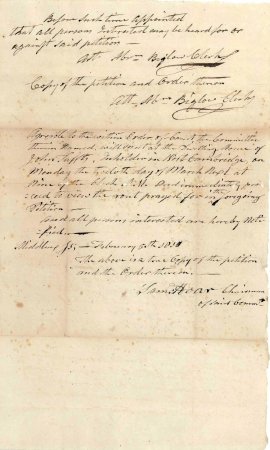 Before such time appointed
that all persons interested may be heard for or
against said petition —
Att. Abm Biglow Clerk
Copy of the petition and Order thereon
Att. Abm Biglow Clerk
to the within Order of Court the Committee
therein Named, will meet at the Dwelling House of
John Tufts, Inholder in West Cambridge, on
Monday the day of March next at
Nine of the Clock A.M. and
to view the rout prayed for in
Petition —
and all persons interested are hereby Noti-
fied —
Middlesex, Ss. — February
The above is a true Copy of the petition
and the Order therein —
Saml Hoar Chairman
of said Commtt